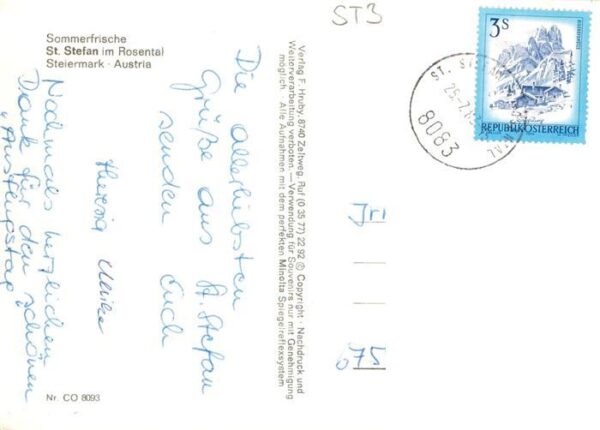 ST3
Sommerfrische
St. Stefan im Rosental
Steiermark · Austria
Die allerliebsten
Grüße aus St. Stefan
senden Euch
Theresia Ulrike
Nochmals herzlichen
Dank für den schönen
Ausflugstag
Nr. CO 8093
Verlag F. Hruby, 8740 Zeltweg, Ruf (0 35 77) 22 92 © Copyright · Nachdruck und
Weiterverarbeitung verboten. — Verwendung für Souvenirs nur mit Genehmigung
möglich · Alle Aufnahmen mit dem perfekten Minolta Spiegelreflexsystem
3 S
REPUBLIK ÖSTERREICH
8083
075